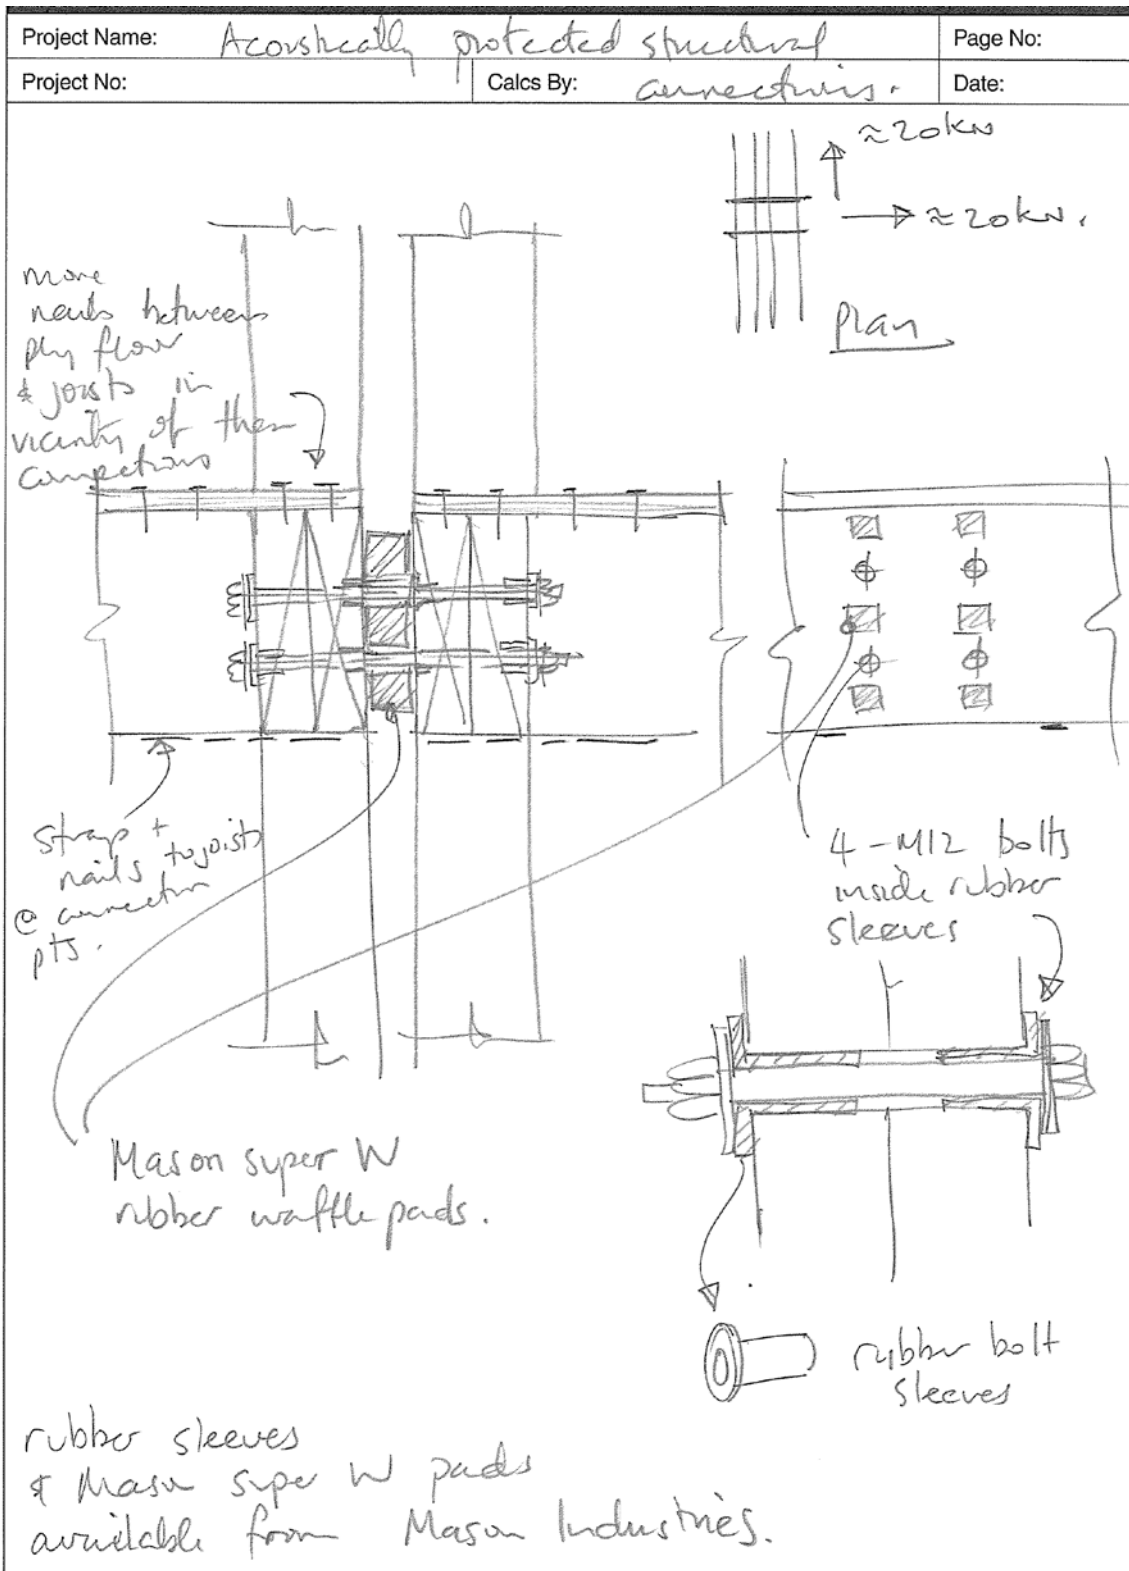 Project Name: Acoustically protected structural
Page No:
Project No:
Calcs By: connections.
Date:
≈20kN
≈20kN.
Plan
more
nails between
ply flow
& joists in
vicinity of then
connections
strap +
nails to joists
@ connection
pts.
4-M12 bolts
inside rubber
sleeves
Mason super W
rubber waffle pads.
rubber bolt
sleeves
rubber sleeves
& Mason super W pads
available from Mason Industries.